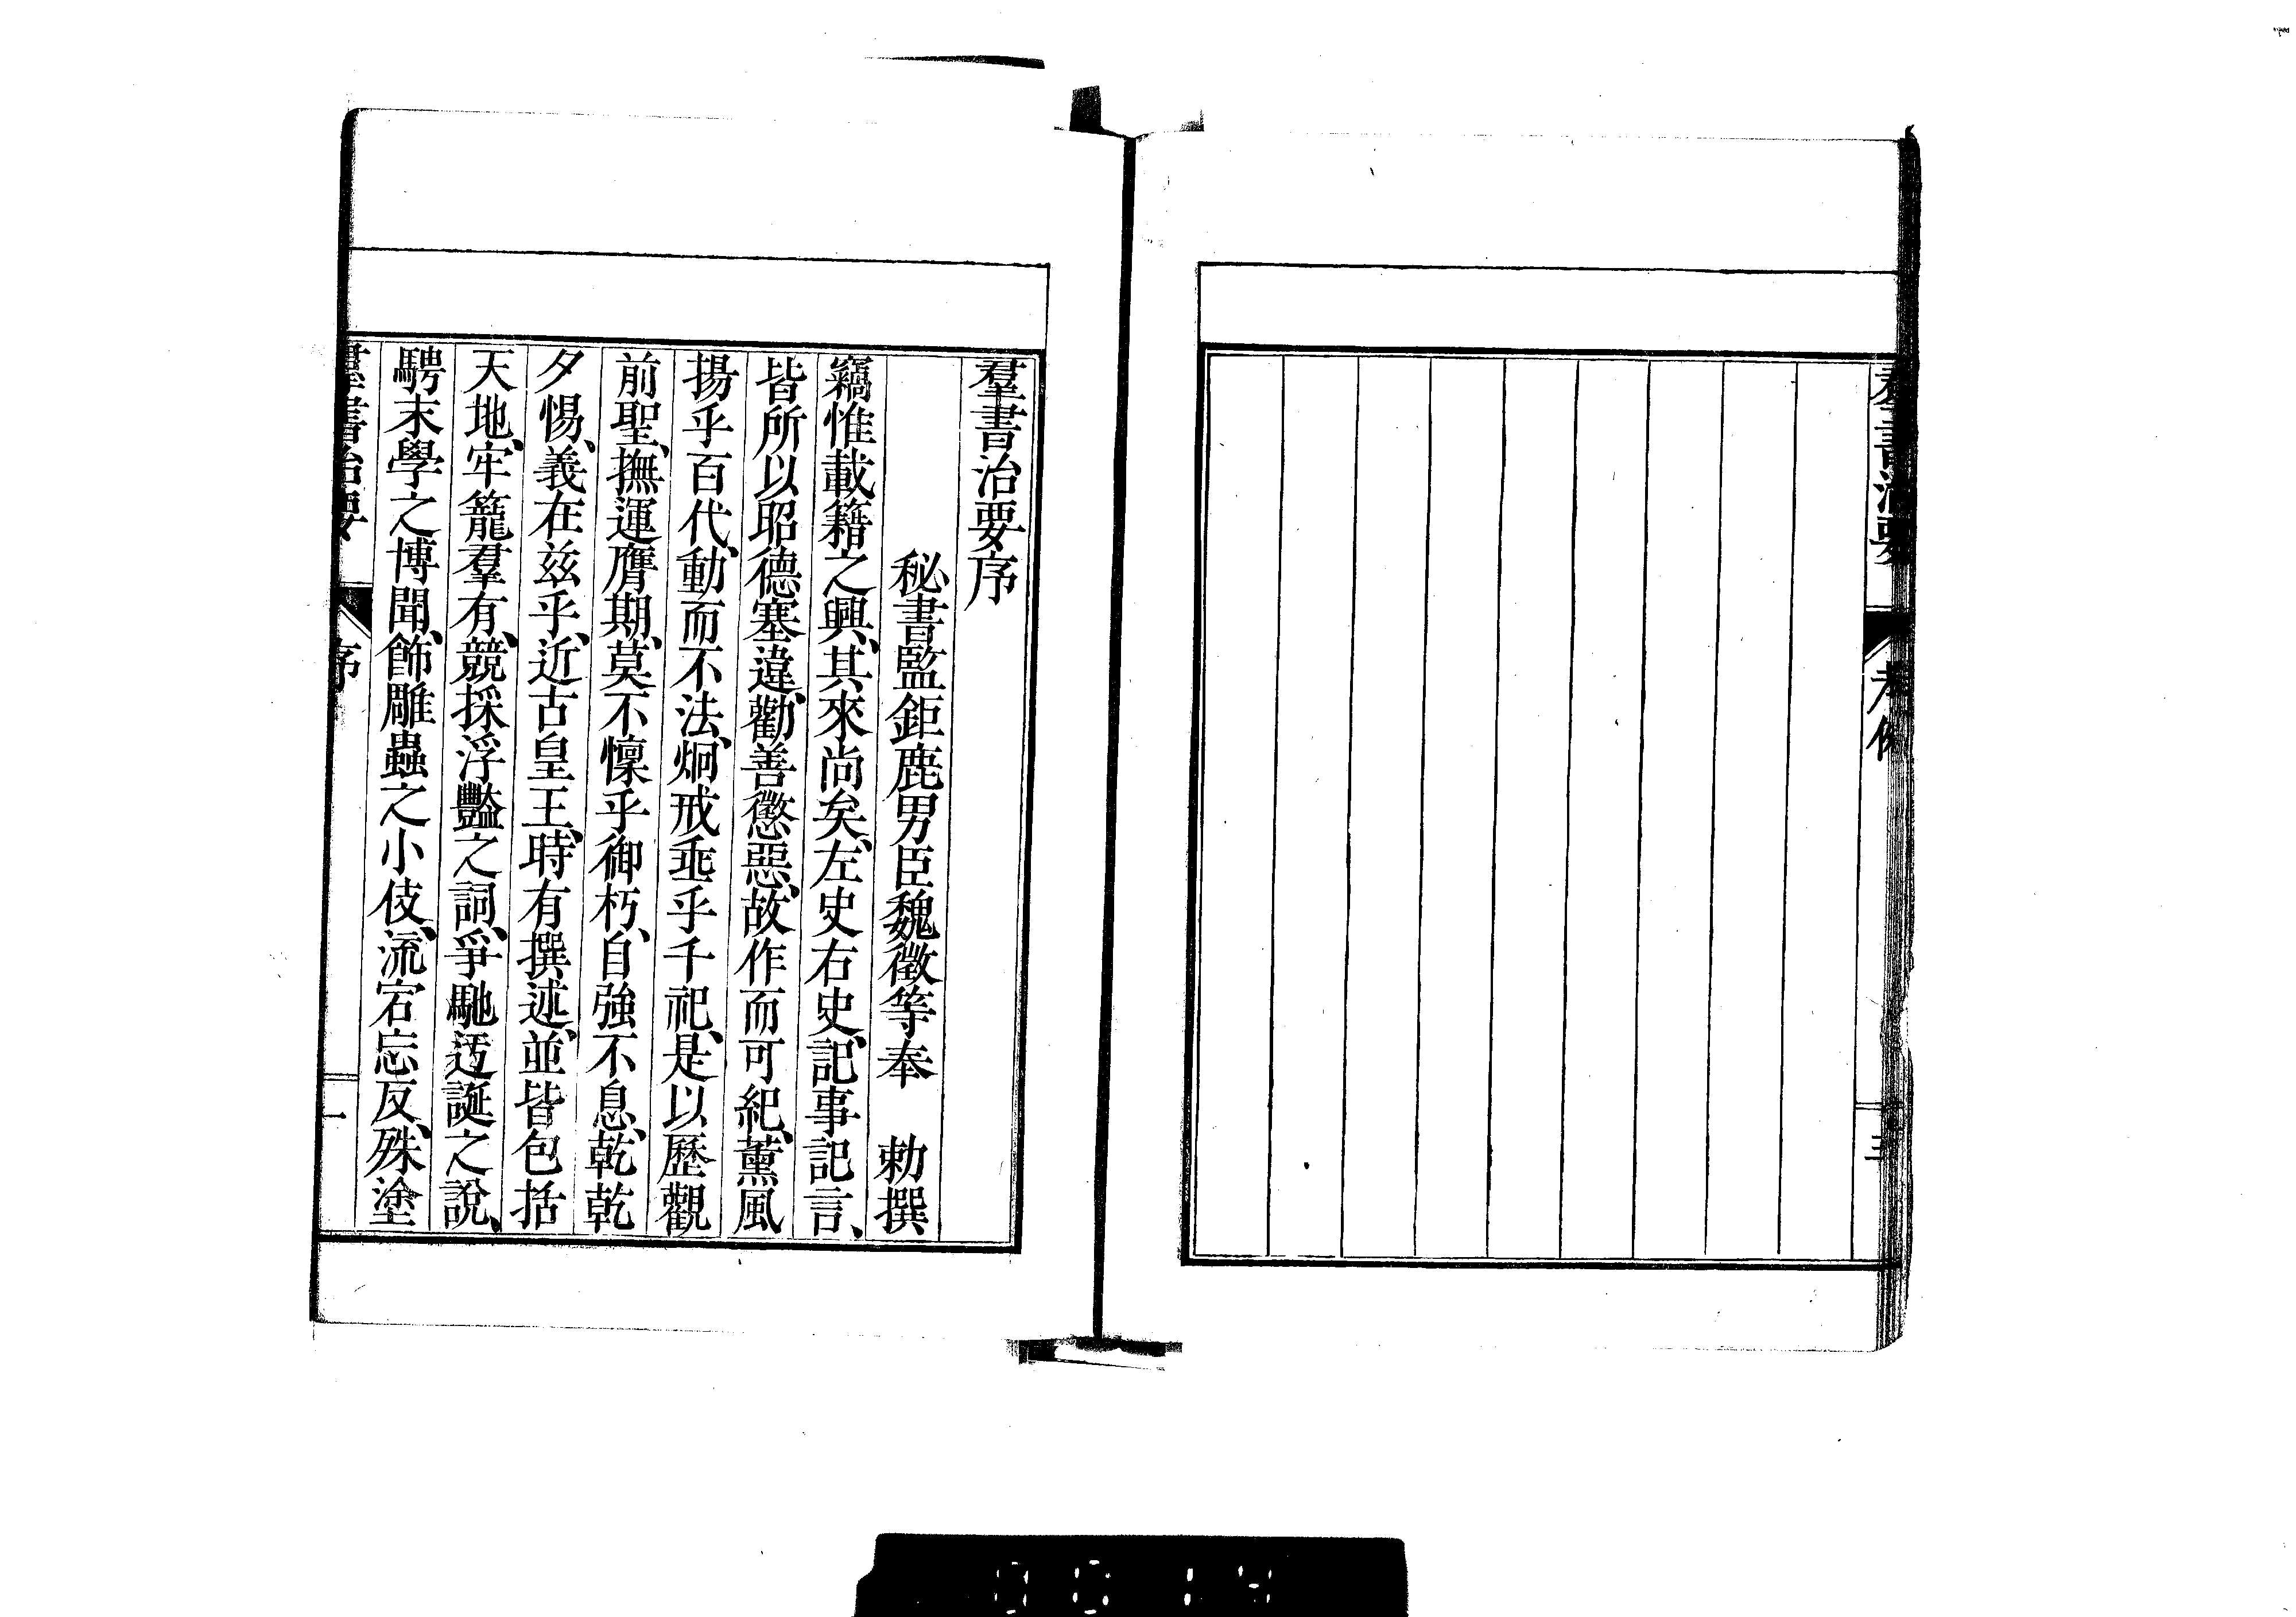 羣書治要
羣書治要序
秘書監鉅鹿男臣魏徵等奉　勅撰
竊惟載籍之興、其來尚矣、左史右史、記事記言、
皆所以昭德塞違、勸善懲惡、故作而可紀、薰風
揚乎百代、動而不法、炯戒垂乎千祀、是以歷觀
前聖、撫運膺期、莫不懍乎御朽、自強不息、乾乾
夕惕、義在茲乎、近古皇王、時有撰述、並皆包括
天地、牢籠羣有、競採浮豔之詞、爭馳迃誕之說、
騁末學之博聞、飾雕蟲之小伎、流宕忘反、殊塗
羣書治要　序　一